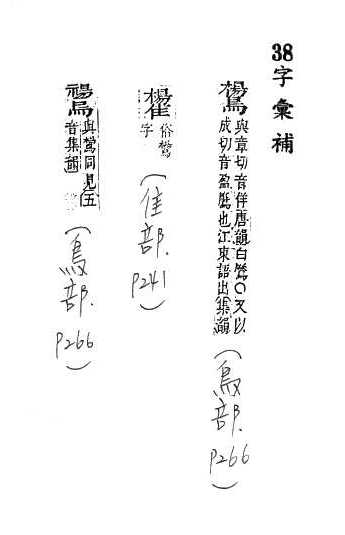 38字彙補
與章切音佯唐韻白鷢○又以
成切音盈鷢也江東語出集韻
(鳥部. P266)
俗
字
(隹部. P241)
與同見五
音集韻
(鳥部. P266)